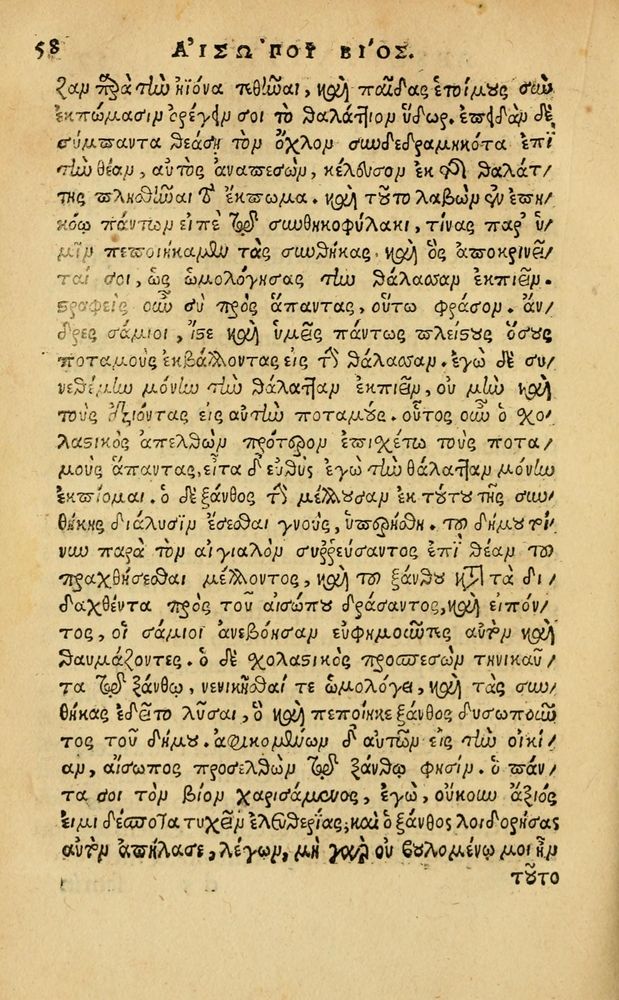 58 ΑἸΣΏΠΟΥ ΒΊΟΣ.
ζαν παρὰ τὴν ἠϊόνα τεθῆναι, καὶ παῖδας ἑτοίμους σὺν
ἐκπώμασιν ὀρέγειν σοι τὸ θαλάττιον ὕδωρ. ἐπειδὰν δὲ
σύμπαντα θεάσῃ τὸν ὄχλον συνδεδραμηκότα ἐπὶ
τὴν θέαν, αὐτὸς ἀναπεσὼν, κέλευσον ἐκ τῆς θαλάτ/
της πλησθῆναι τὸ ἔκπωμα. καὶ τοῦτο λαβὼν ἐν ἐπη/
κόῳ πάντων εἰπὲ τῷ συνθηκοφύλακι, τίνας παρ' ὑ/
μῖν πεποίηκαμεν τὰς συνθήκας. καὶ ὃς ἀποκρινεῖ/
ταί σοι, ὡς ὡμολόγησας τὴν θάλασσαν ἐκπιεῖν.
στραφεὶς οὖν σὺ πρὸς ἅπαντας, οὕτω φράσον. ἄν/
δρες σάμιοι, ἴστε καὶ ὑμεῖς πάντως πλείστους ὅσους
ποταμοὺς ἐκβάλλοντας εἰς τὴν θάλασσαν. ἐγὼ δὲ συ/
νεθέμην μόνην τὴν θάλατταν ἐκπιεῖν, οὐ μὴν καὶ
τοὺς ἐξιόντας εἰς αὐτὴν ποταμούς. οὗτος οὖν ὁ σχο/
λαστικὸς ἀπελθὼν πρότερον ἐπισχέτω τοὺς ποτα/
μοὺς ἅπαντας, εἶτα δ' εὐθὺς ἐγὼ τὴν θάλατταν μόνην
ἐκπίομαι. ὁ δὲ ξάνθος τὴν μέλλουσαν ἐκ τούτου τῆς συν/
θήκης διάλυσιν ἔσεσθαι γνοὺς, ὑπερήσθη. τοῦ δήμου τοί/
νυν παρὰ τὸν αἰγιαλὸν συῤῥεύσαντος ἐπὶ θέαν τοῦ
πραχθήσεσθαι μέλλοντος, καὶ τοῦ ξάνθου κατὰ τὰ δι/
δαχθέντα πρὸς τοῦ αἰσώπου δράσαντος, καὶ εἰπόν/
τος, οἱ σάμιοι ἀνεβόησαν εὐφημοῦντες αὐτὸν καὶ
θαυμάζοντες. ὁ δὲ σχολαστικὸς προσπεσὼν τηνικαῦ/
τα τῷ ξάνθῳ, νενικῆσθαί τε ὡμολόγει, καὶ τὰς συν/
θήκας ἐδεῖτο λῦσαι, ὃ καὶ πεποίηκε ξάνθος δυσωποῦν
τος τοῦ δήμου. ἀφικομένων δ' αὐτῶν εἰς τὴν οἰκί/
αν, αἴσωπος προσελθὼν τῷ ξάνθῳ φησίν. ὁ πάν/
τα σοι τὸν βίον χαρισάμενος, ἐγὼ, οὔκουν ἄξιός
εἰμι δέσποτα τυχεῖν ἐλευθερίας; καὶ ὁ ξάνθος λοιδορήσας
αὐτὸν ἀπήλασε, λέγων, μὴ γὰρ οὐ βουλομένῳ μοι ἦν
τοῦτο